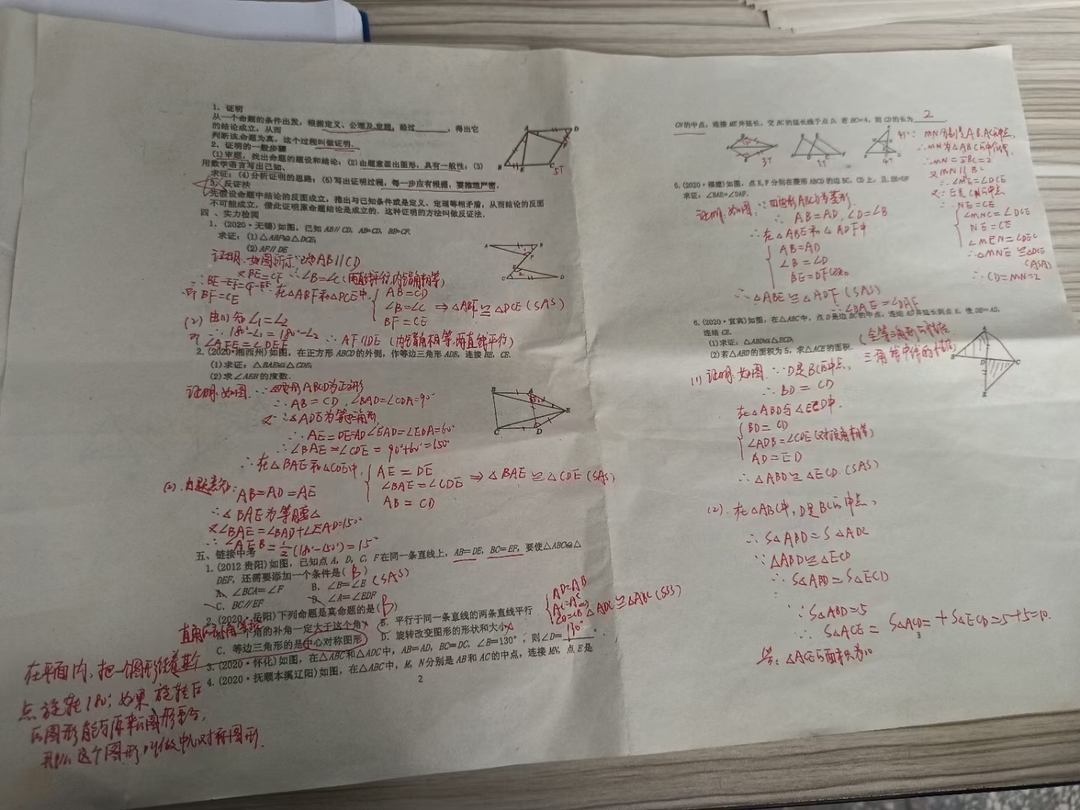 1. 证明
从一个命题的条件出发，根据定义、公理及定理，经过______，得出它
的结论成立，从而
判断该命题为真，这个过程叫做证明.
2. 证明的一般步骤
(1)审题，找出命题的题设和结论；(2)由题意画出图形，具有一般性；(3)
用数学语言写出已知、
求证；(4)分析证明的思路；(5)写出证明过程，每一步应有根据，要推理严密.
3. 反证法
先假设命题中结论的反面成立，推出与已知条件或是定义、定理等相矛盾，从而结论的反面
不可能成立，借此证明原命题结论是成立的，这种证明的方法叫做反证法.
四、实力检测
1. (2020·无锡)如图，已知 AB∥CD，AB=CD，BE=CF.
求证：(1)△ABF≌△DCE；
(2)AF∥DE
证明：如图所示 ∵AB∥CD
∴∠B=∠C (两直线平行，内错角相等)
又BE=CF
∴BE-EF=CF-EF
即BF=CE
在△ABF和△DCE中
AB=CD
∠B=∠C ⇒△ABF≌△DCE(SAS)
BF=CE
(2) 由(1)知∠1=∠2
∴180°-∠1=180°-∠2
即∠AFE=∠DEF
∴AF∥DE (内错角相等，两直线平行)
2. (2020·湘西州)如图，在正方形 ABCD的外侧，作等边三角形 ADE，连接 BE，CE.
(1)求证：△BAE≌△CDE；
(2)求∠AEB 的度数.
证明：如图：∵四边形ABCD为正方形
∴AB=CD，∠BAD=∠CDA=90°
又∵△ADE为等边三角形
∴AE=DE=AD ∠EAD=∠EDA=60°
∴∠BAE=∠CDE=90°+60°=150°
∴在△BAE和△CDE中，
AE=DE
∠BAE=∠CDE ⇒△BAE≌△CDE(SAS)
AB=CD
(2)
AB=AD=AE
∴△BAE为等腰△
又∠BAE=∠BAD+∠EAD=150°
∴∠AEB=½(180°-150°)=15°
五、链接中考
1. (2012·贵阳)如图，已知点 A、D、C、F在同一条直线上，AB=DE，BC=EF，要使△ABC≌△
DEF，还需要添加一个条件是(B)
A. ∠BCA=∠F B. ∠B=∠E (SAS)
C. BC∥EF D. ∠A=∠EDF
2. (2020·岳阳)下列命题是真命题的是(B)
A. 一个角的补角一定大于这个角 B. 平行于同一条直线的两条直线平行
C. 等边三角形是中心对称图形 D. 旋转改变图形的形状和大小
3. (2020·怀化)如图，在△ABC和△ADC中，AB=AD，BC=DC，∠B=130°，则∠D=130°
△ADC≌△ABC(SSS)
4. (2020·抚顺本溪辽阳)如图，在△ABC中，M，N分别是AB和AC的中点，连接MN，点E是
2
在平面内，把一个图形绕着某个
点旋转180°，如果旋转后
的图形能与原来的图形重合，
那么这个图形叫做中心对称图形.
CN的中点，连接 ME并延长，交 BC的延长线于点 D. 若 BC=4，则 CD的长为 2
∵MN分别是AB、AC的中点，
∴MN为△ABC的中位线
∴MN=½BC=2
又MN∥BC
∴∠MNC=∠DCE
又∵E是CN的中点
∴NE=CE
∠MNE=∠DCE
NE=CE
∠MEN=∠DEC
∴△MNE≌△DCE
(ASA)
∴CD=MN=2
5. (2020·福建)如图，点 E，F分别在菱形 ABCD的边 BC，CD上，且 BE=DF
求证：∠BAE=∠DAF.
证明：如图，∵四边形ABCD为菱形
∴AB=AD，∠D=∠B
∴在△ABE和△ADF中
AB=AD
∠B=∠D
BE=DF
∴△ABE≌△ADF(SAS)
∴∠BAE=∠DAF
6. (2020·宜宾)如图，在△ABC中，点 D是边 BC的中点，连结 AD并延长到点 E，使 DE=AD，
连结 CE.
(1)求证：△ABD≌△ECD；
(2)若△ABD的面积为 5，求△ACE的面积.
(1) 证明：如图 ∵D是BC的中点，
∴BD=CD
在△ABD与△ECD中.
BD=CD
∠ADB=∠CDE(对顶角相等)
AD=ED
∴△ABD≌△ECD.(SAS)
(2). 在△ABC中，D是BC的中点，
∴S△ABD=S△ADC
∵△ABD≌△ECD
∴S△ABD=S△ECD
∵S△ABD=5
∴S△ACE=S△ACD+S△ECD=5+5=10.
答：△ACE的面积为10
3